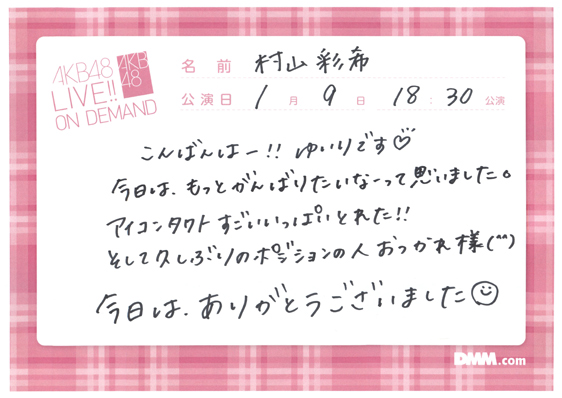 AKB48
LIVE!!
ON DEMAND
AKB
48
名前 村山彩希
公演日 1月9日 18:30公演
こんばんはー!! ゆいりです♡
今日は、もっとがんばりたいなーって思いました。
アイコンタクトすごいいっぱいとれた!!
そして久しぶりのポジションの人おつかれ様(^^)
今日は、ありがとうございました☺
DMM.com